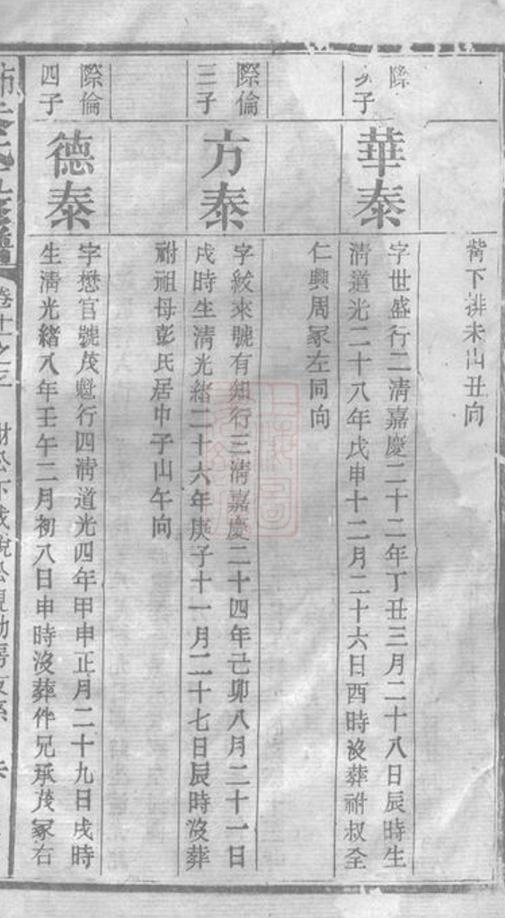 背下排未山丑向
際
子
華泰
字世盛行二清嘉慶二十二年丁丑三月二十八日辰時生
清道光二十八年戊申十二月二十六日酉時沒葬祔叔全
仁興周冢左同向
際倫
三子
方泰
字紋來號有細行三清嘉慶二十四年己卯八月二十一日
戌時生清光緒二十六年庚子十一月二十七日辰時沒葬
祔祖母彭氏居中子山午向
際倫
四子
德泰
字懋官號茂魁行四清道光四年甲申正月二十九日戌時
生清光緒八年壬午二月初八日申時沒葬伴兄承茂冢右
卷十之三